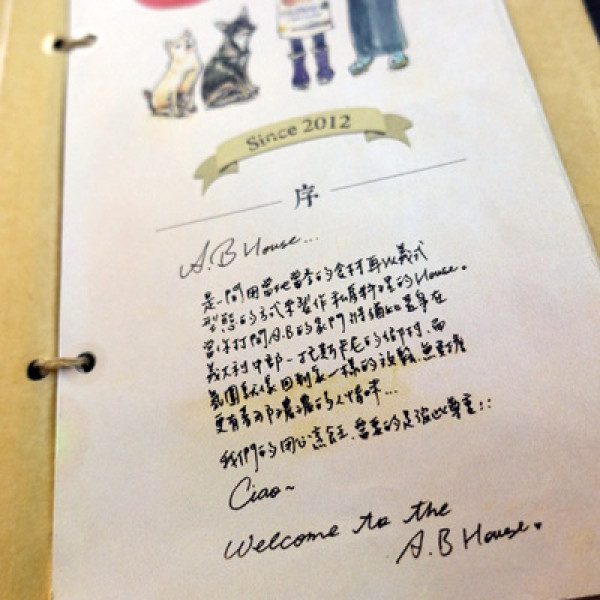 Since 2012
序
A.B House...
是一間用當地當季的食材再以義式
型態的方式來製作私房料理的House。
當你打開A.B的家門將猶如置身在
義大利中部-托斯卡尼的鄉村,而
氛圍就像回到家一樣的放鬆、無拘
更有著那濃濃的人情味...
我們的用心烹飪,當要的是彼此尊重!!
Ciao~
Welcome to the
A.B House.